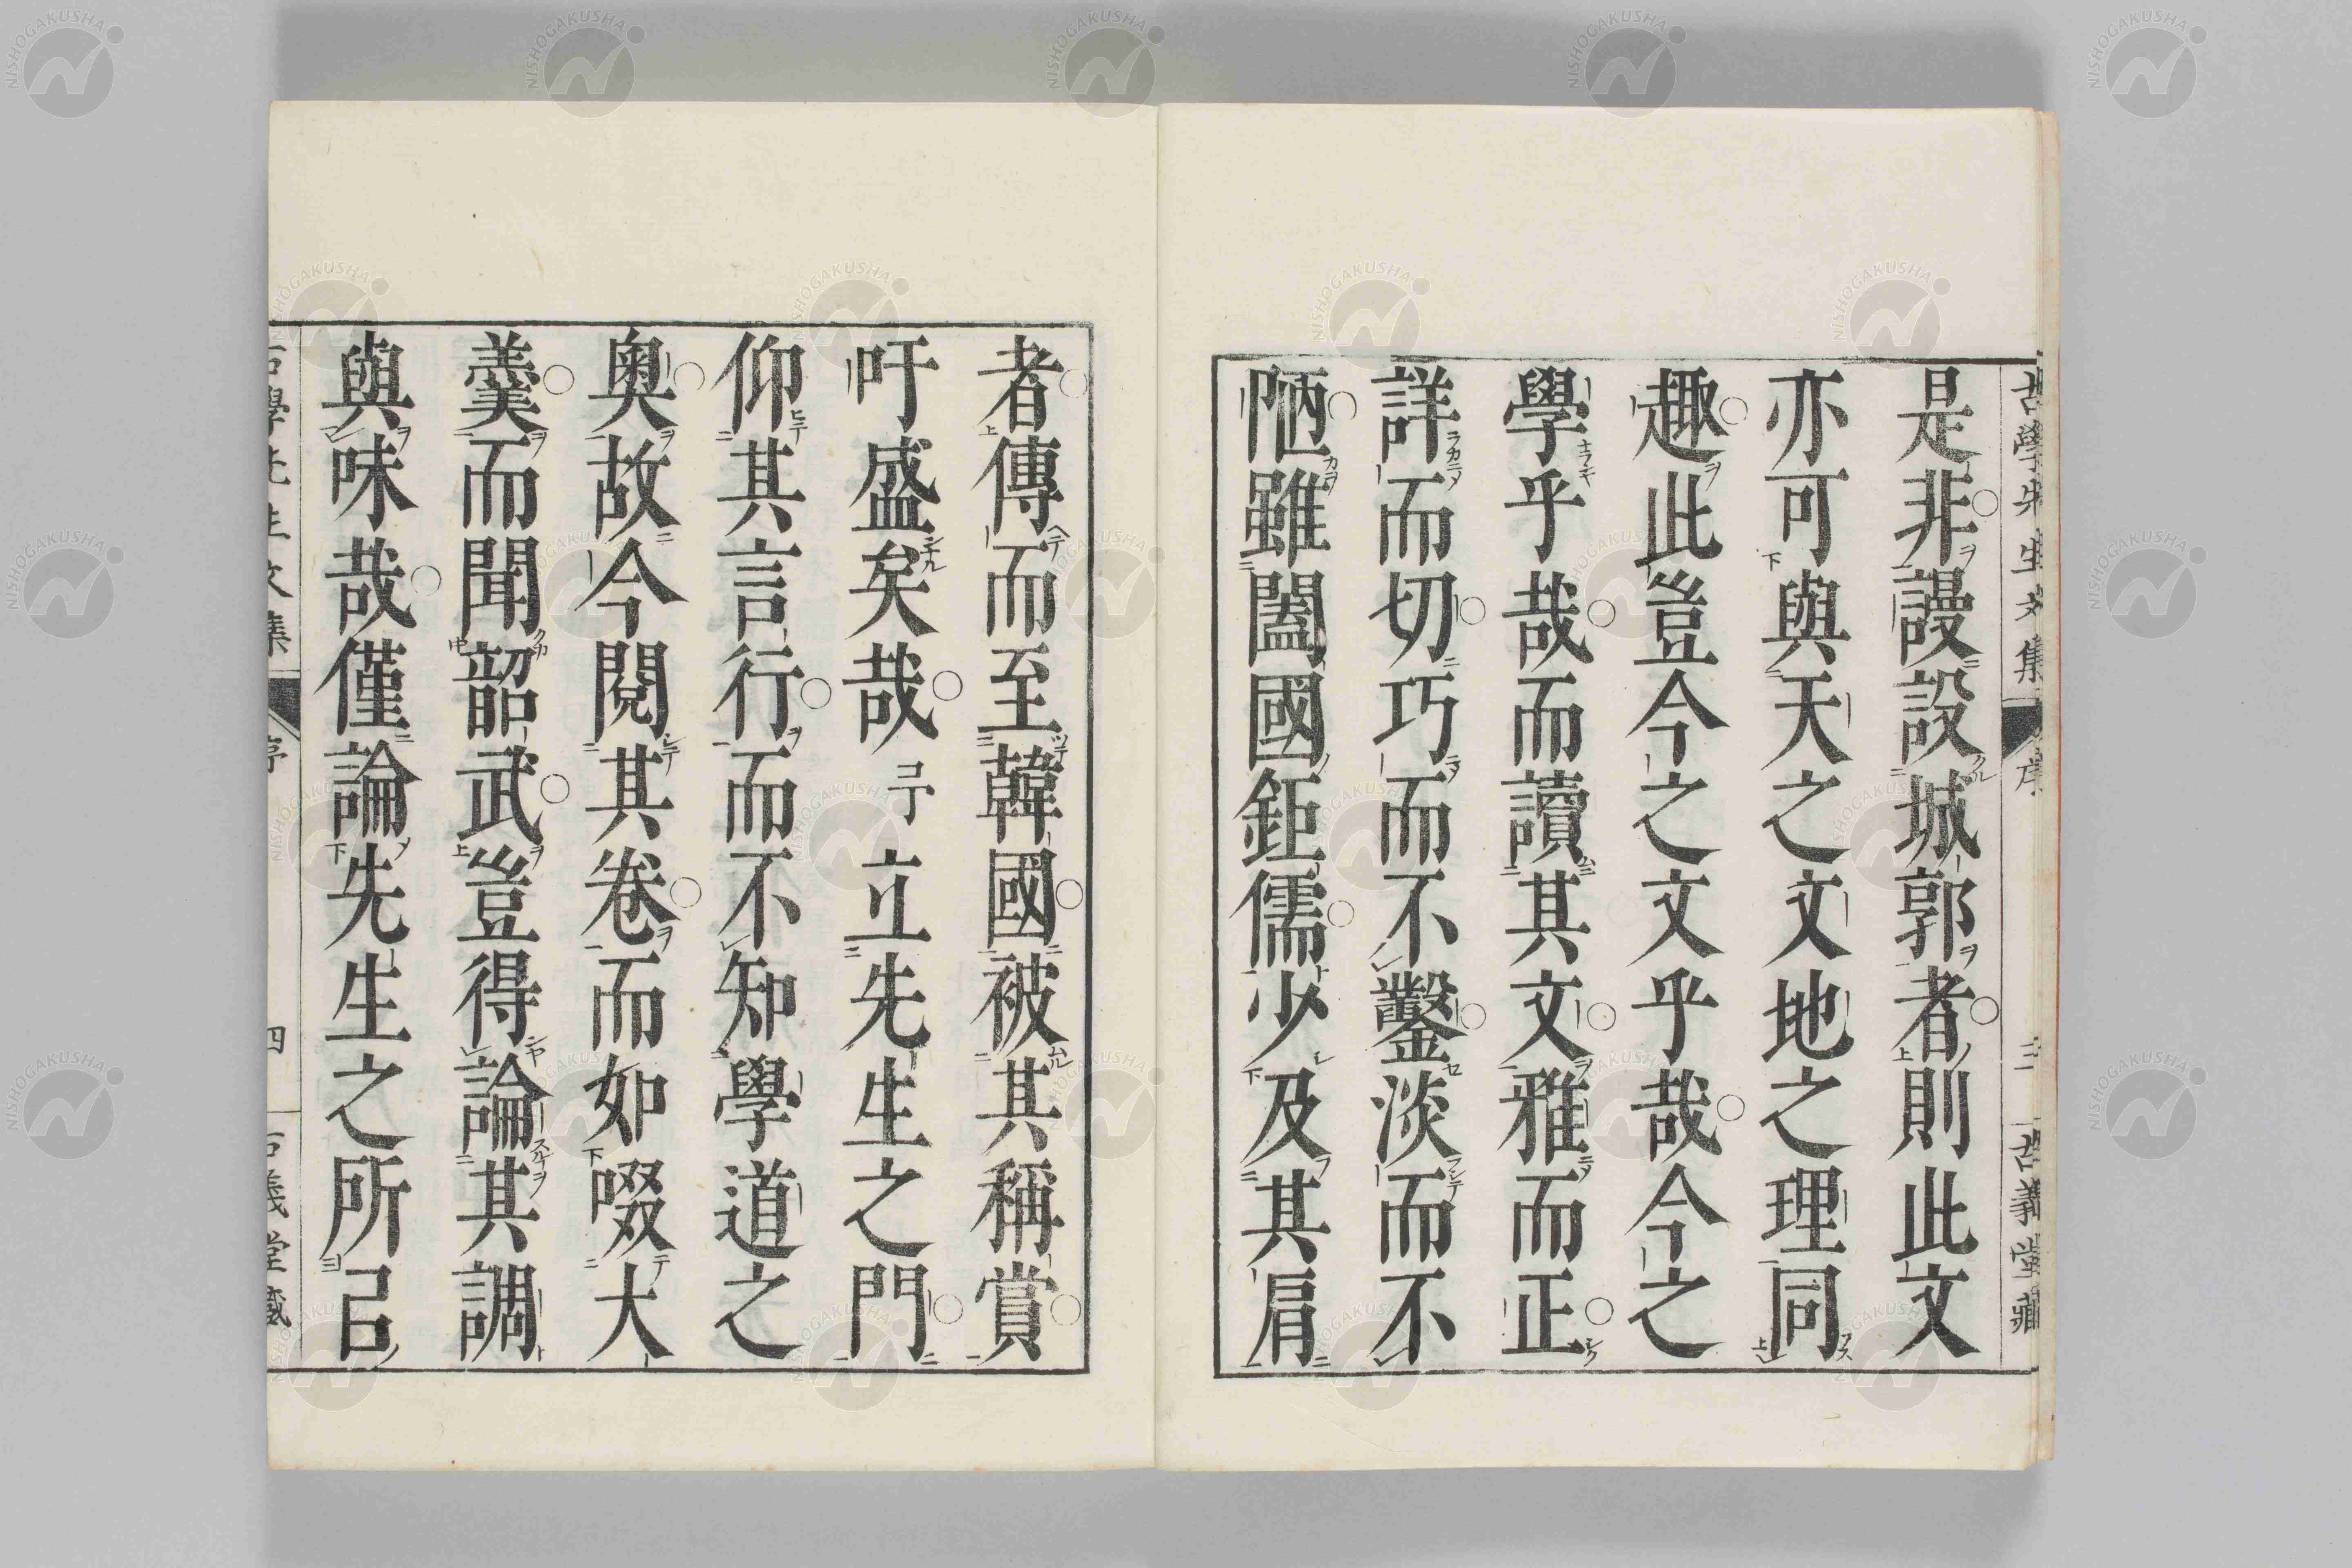 古學先生文集 序 三 古義堂藏
是非謾設城郭者則此文
亦可與天之文地之理同
趣此豈今之文乎哉今之
學乎哉而讀其文雅而正
詳而切巧而不鑿淡而不
陋雖闔國鉅儒少及其肩
者傳而至韓國被其稱賞
吁盛矣哉予立先生之門
仰其言行而不知學道之
奧故今閱其卷而如啜大
羹而聞韶武豈得論其調
與味哉僅論先生之所已
古學先生文集 序 四 古義堂藏
NISHOGAKUSHA